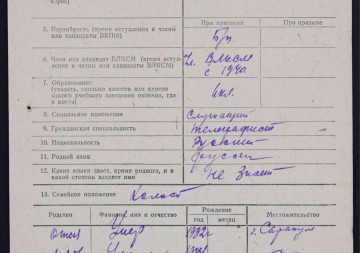 адрес)
При призыве При приписке
5. Партийность (время вступления в члены
или кандидаты ВКП(б)
Б/п
6. Член или кандидат ВЛКСМ (время вступления
в члены или кандидаты ВЛКСМ)
Чл. Влксм
с 1940
7. Образование:
(указать, сколько классов или курсов
какого учебного заведения окончил, где
и когда)
6 кл.
8. Социальное положение Служащий
9. Гражданская специальность телеграфист
10. Национальность Русский
11. Родной язык русский
12. Какие языки знает, кроме родного, и в
какой степени владеет ими
не знает
13. Семейное положение Холост
Родство Фамилия, имя и отчество Рождение Местожительство
год месяц
отец умер г. Сарапул